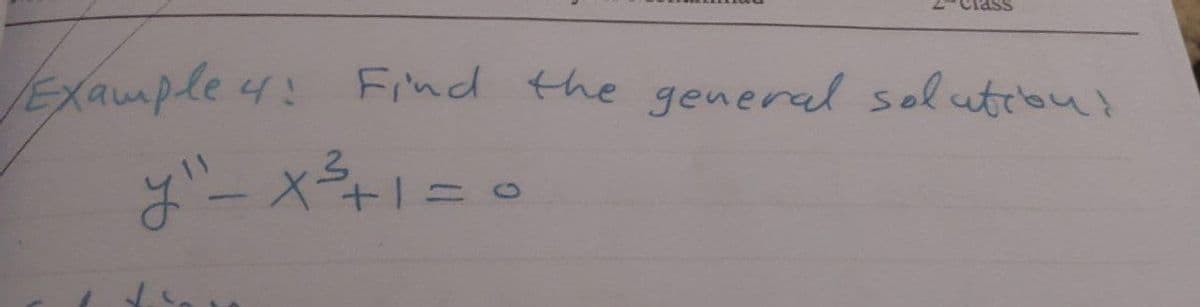 2-class
Example 4: Find the general solution:
y'' - x³ + 1 = 0